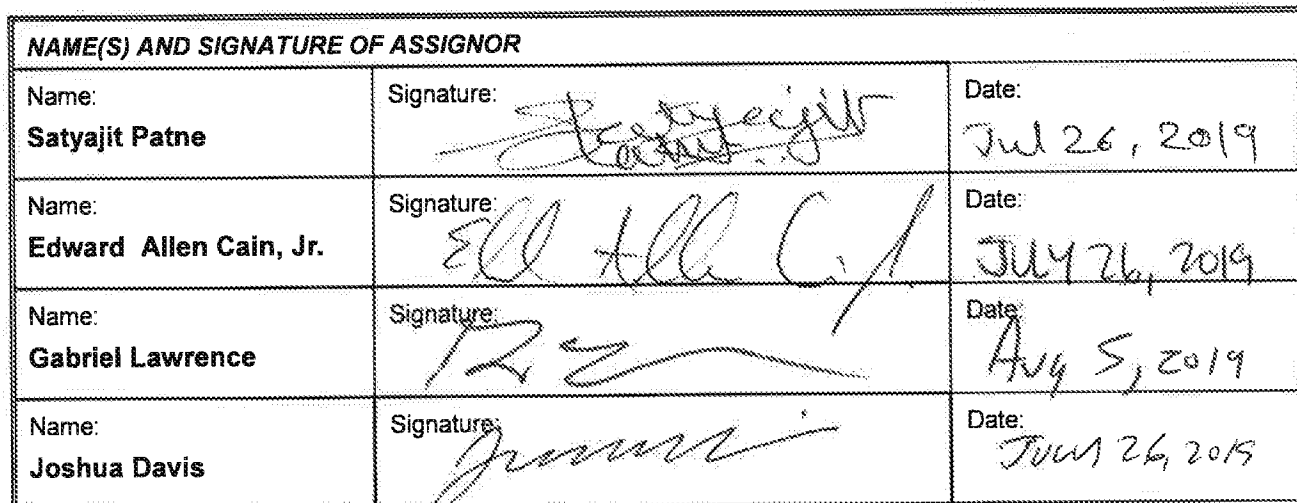 NAME(S) AND SIGNATURE OF ASSIGNOR
Name:
Satyajit Patne
Signature:
Satyajit
Date:
Jul 26, 2019
Name:
Edward Allen Cain, Jr.
Signature:
Date:
JULY 26, 2019
Name:
Gabriel Lawrence
Signature:
Date:
Aug 5, 2019
Name:
Joshua Davis
Signature:
Date:
July 26, 2019